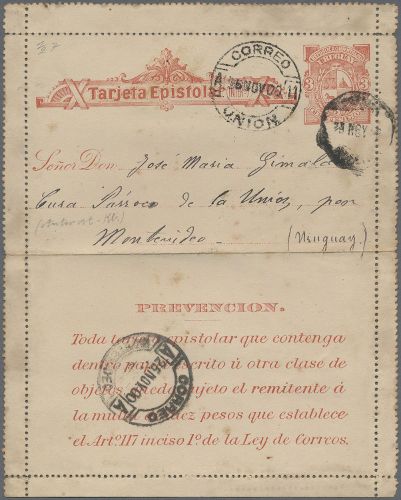 CORREO
25 NOV 00
UNION
Tarjeta Epistolar
Señor Don José Maria
Cura Párroco de la Unión, por
Montevideo (Uruguay)
PREVENCION.
Toda tarjeta epistolar que contenga
dentro escrito ú otra clase de
objetos, queda sujeto el remitente á
la multa de diez pesos que establece
el Artº. 117 inciso 1º. de la Ley de Correos.
CORREO